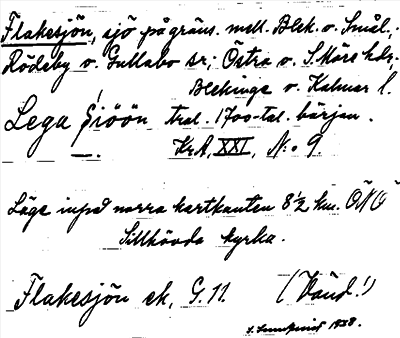 Flakesjön, sjö på gräns. mell. Blek. o. Smål.,
Rödeby o. Gullabo sr; Östra o. S. Möre hdr,
Blekinge o. Kalmar l.
Lega Siöön trol. 1700-tal. början.
Kr.A, XXI, N:o 9
Läge inpå norra kartkanten 8½ km. ÖNÖ
Sillhövda kyrka.
Flakesjön ek. G. 11. (Vänd!)
1938.